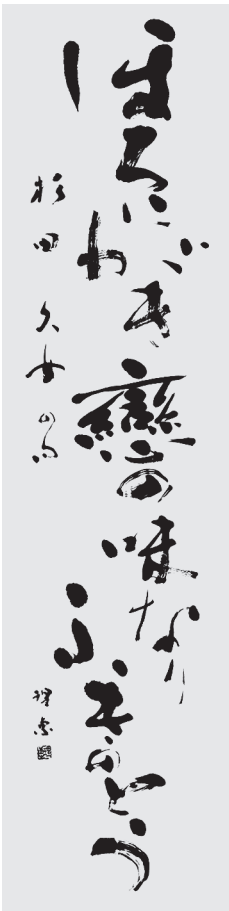 ほろにがき戀の味なりふきのとう
杉田久女の句